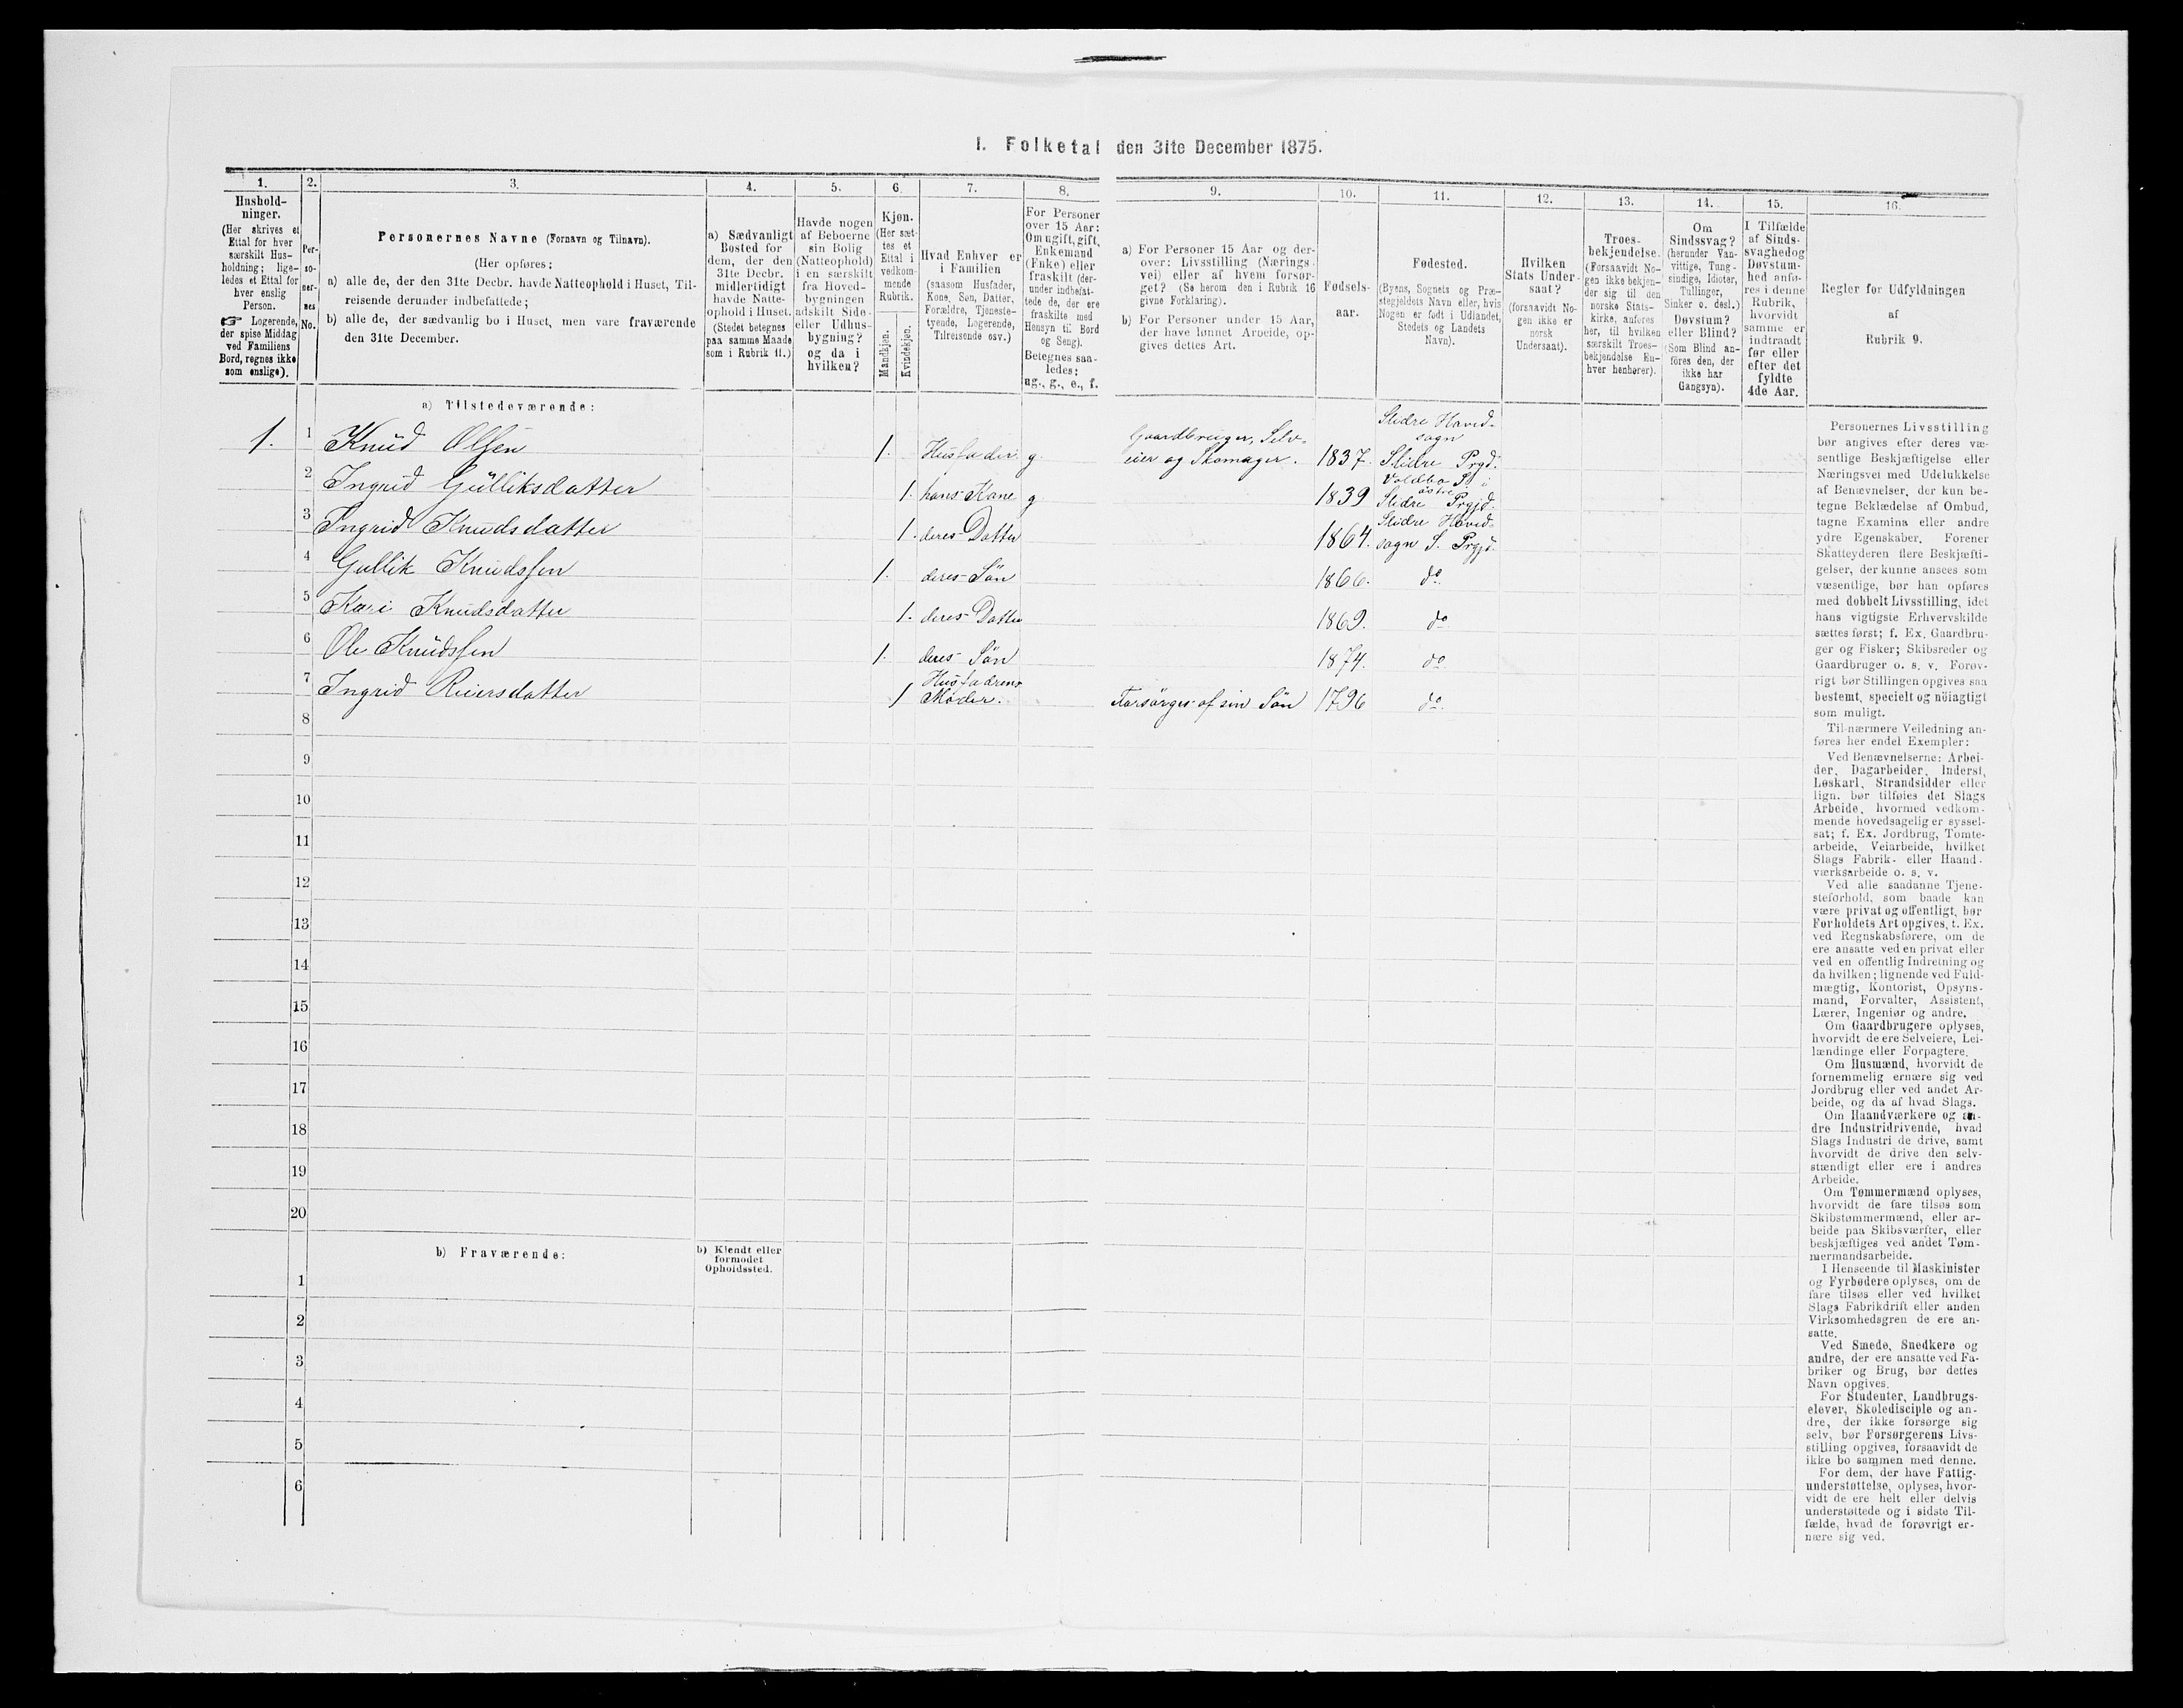 I. Folketal den 31te December 1875.
1.
Hushold-
ninger.
(Her skrives et
Ettal for hver
særskilt Hus-
holdning; lige-
ledes et Ettal for
hver enslig
Person.
☞ Logerende,
der spise Middag
ved Familiens
Bord, regnes ikke
som enslige).
2.
Per-
so-
ner-
nes
No.
3.
Personernes Navne (Fornavn og Tilnavn).
(Her opføres:
a) alle de, der den 31te Decbr. havde Natteophold i Huset, Til-
reisende derunder indbefattede;
b) alle de, der sædvanlig bo i Huset, men vare fraværende
den 31te December.
4.
a) Sædvanligt
Bosted for
dem, der den
31te Decbr.
midlertidigt
havde Natte-
ophold i Huset.
(Stedet betegnes
paa samme Maade
som i Rubrik 11.)
5.
Havde nogen
af Beboerne
sin Bolig
(Natteophold)
i en særskilt
fra Hoved-
bygningen
adskilt Side-
eller Udhus-
bygning?
og da i
hvilken?
6.
Kjøn.
(Her sæt-
tes et
Ettal i
vedkom-
mende
Rubrik.
Mandkjøn.
Kvindekjøn.
7.
Hvad Enhver er
i Familien
(saasom Husfader,
Kone, Søn, Datter,
Forældre, Tjeneste-
tyende, Logerende,
Tilreisende osv.)
8.
For Personer
over 15 Aar:
Om ugift, gift,
Enkemand
(Enke) eller
fraskilt (der-
under indbefat-
tede de, der ere
fraskilte med
Hensyn til Bord
og Seng).
Betegnes saa-
ledes:
ug., g., e., f.
9.
a) For Personer 15 Aar og der-
over: Livsstilling (Nærings-
vei) eller af hvem forsør-
get? (Se herom den i Rubrik 16
givne Forklaring).
b) For Personer under 15 Aar,
der have lønnet Arbeide, op-
gives dettes Art.
10.
Fødsels-
aar.
11.
Fødested.
(Byens, Sognets og Præ-
stegjeldets Navn eller, hvis
Nogen er født i Udlandet,
Stedets og Landets
Navn).
12.
Hvilken
Stats Under-
saat?
(forsaavidt No-
gen ikke er
norsk
Undersaat).
13.
Troes-
bekjendelse.
(Forsaavidt No-
gen ikke bekjen-
der sig til den
norske Stats-
kirke, anføres
her, til hvilken
særskilt Troes-
bekjendelse En-
hver henhører).
14.
Om
Sindssvag?
(herunder Van-
vittige, Tung-
sindige, Idioter,
Tullinger,
Sinker o. desl.)
Døvstum?
eller Blind?
(Som Blind an-
føres den, der
ikke har
Gangsyn).
15.
I Tilfælde
af Sinds-
svaghed og
Døvstum-
hed anfø-
res i denne
Rubrik,
hvorvidt
samme er
indtraadt
før eller
efter det
fyldte
4de Aar.
16.
Regler for Udfyldningen
af
Rubrik 9.
a) Tilstedeværende:
Slidre Hoved-
sogn
1. 1 Knud Olsen 1. Husfader g. Gaardbruger, Selv-
eier og Skomager. 1837. Slidre Prgd.
Voldbo S. i
østre
2 Ingrid Gulliksdatter 1. hans Kone g 1839 Slidre Prgjd.
Slidre Hoved-
3 Ingrid Knudsdatter 1. deres Datter 1864. sogn S. Prgjd.
4 Gullik Knudssen 1. deres Søn 1866. do.
5 Kari Knudsdatter 1. deres Datter 1869. do
6 Ole Knudssen 1. deres Søn 1874. do.
Husfaderens
7 Ingrid Reiersdatter 1 Moder. Forsørges af sin Søn 1796 do.
8
9
10
11
12
13
14
15
16
17
18
19
20
b) Fraværende:
b) Kjendt eller
formodet
Opholdssted.
1
2
3
4
5
6
Personernes Livsstilling
bør angives efter deres væ-
sentlige Beskjæftigelse eller
Næringsvei med Udelukkelse
af Benævnelser, der kun be-
tegne Beklædelse af Ombud,
tagne Examina eller andre
ydre Egenskaber. Forener
Skatteyderen flere Beskjæfti-
gelser, der kunne ansees som
væsentlige, bør han opføres
med dobbelt Livsstilling, idet
hans vigtigste Erhvervskilde
sættes først; f. Ex. Gaardbru-
ger og Fisker; Skibsreder og
Gaardbruger o. s. v. Forøv-
rigt bør Stillingen opgives saa
bestemt, specielt og nöiagtigt
som muligt.
Til nærmere Veiledning an-
føres her endel Exempler:
Ved Benævnelserne: Arbei-
der, Dagarbeider, Inderst,
Løskarl, Strandsidder eller
lign. bør tilføies det Slags
Arbeide, hvormed vedkom-
mende hovedsagelig er syssel-
sat; f. Ex. Jordbrug, Tomte-
arbeide, Veiarbeide, hvilket
Slags Fabrik- eller Haand-
værksarbeide o. s. v.
Ved alle saadanne Tjene-
steforhold, som baade kan
være privat og offentligt, bør
Forholdets Art opgives, t. Ex.
ved Regnskabsførere, om de
ere ansatte ved en privat eller
ved en offentlig Indretning og
da hvilken; lignende ved Fuld-
mægtig, Kontorist, Opsyns-
mand, Forvalter, Assistent,
Lærer, Ingeniør og andre.
Om Gaardbrugere oplyses,
hvorvidt de ere Selveiere, Lei-
lændinge eller Forpagtere.
Om Husmænd, hvorvidt de
fornemmelig ernære sig ved
Jordbrug eller ved andet Ar-
beide, og da af hvad Slags.
Om Haandværkere og an-
dre Industridrivende, hvad
Slags Industri de drive, samt
hvorvidt de drive den selv-
stændigt eller ere i andres
Arbeide.
Om Tømmermænd oplyses,
hvorvidt de fare tilsøs som
Skibstømmermænd, eller ar-
beide paa Skibsværfter, eller
beskjæftiges ved andet Tøm-
mermandsarbeide.
I Henseende til Maskinister
og Fyrbødere oplyses, om de
fare tilsøs eller ved hvilket
Slags Fabrikdrift eller anden
Virksomhedsgren de ere an-
satte.
Ved Smede, Snedkere og
andre, der ere ansatte ved Fa-
briker og Brug, bør dettes
Navn opgives.
For Studenter, Landbrugs-
elever, Skoledisciple og an-
dre, der ikke forsørge sig
selv, bør Forsørgerens Livs-
stilling opgives, forsaavidt de
ikke bo sammen med denne.
For dem, der have Fattig-
understøttelse, oplyses, hvor-
vidt de ere helt eller delvis
understøttede og i sidste Til-
fælde, hvad de forøvrigt er-
nære sig ved.